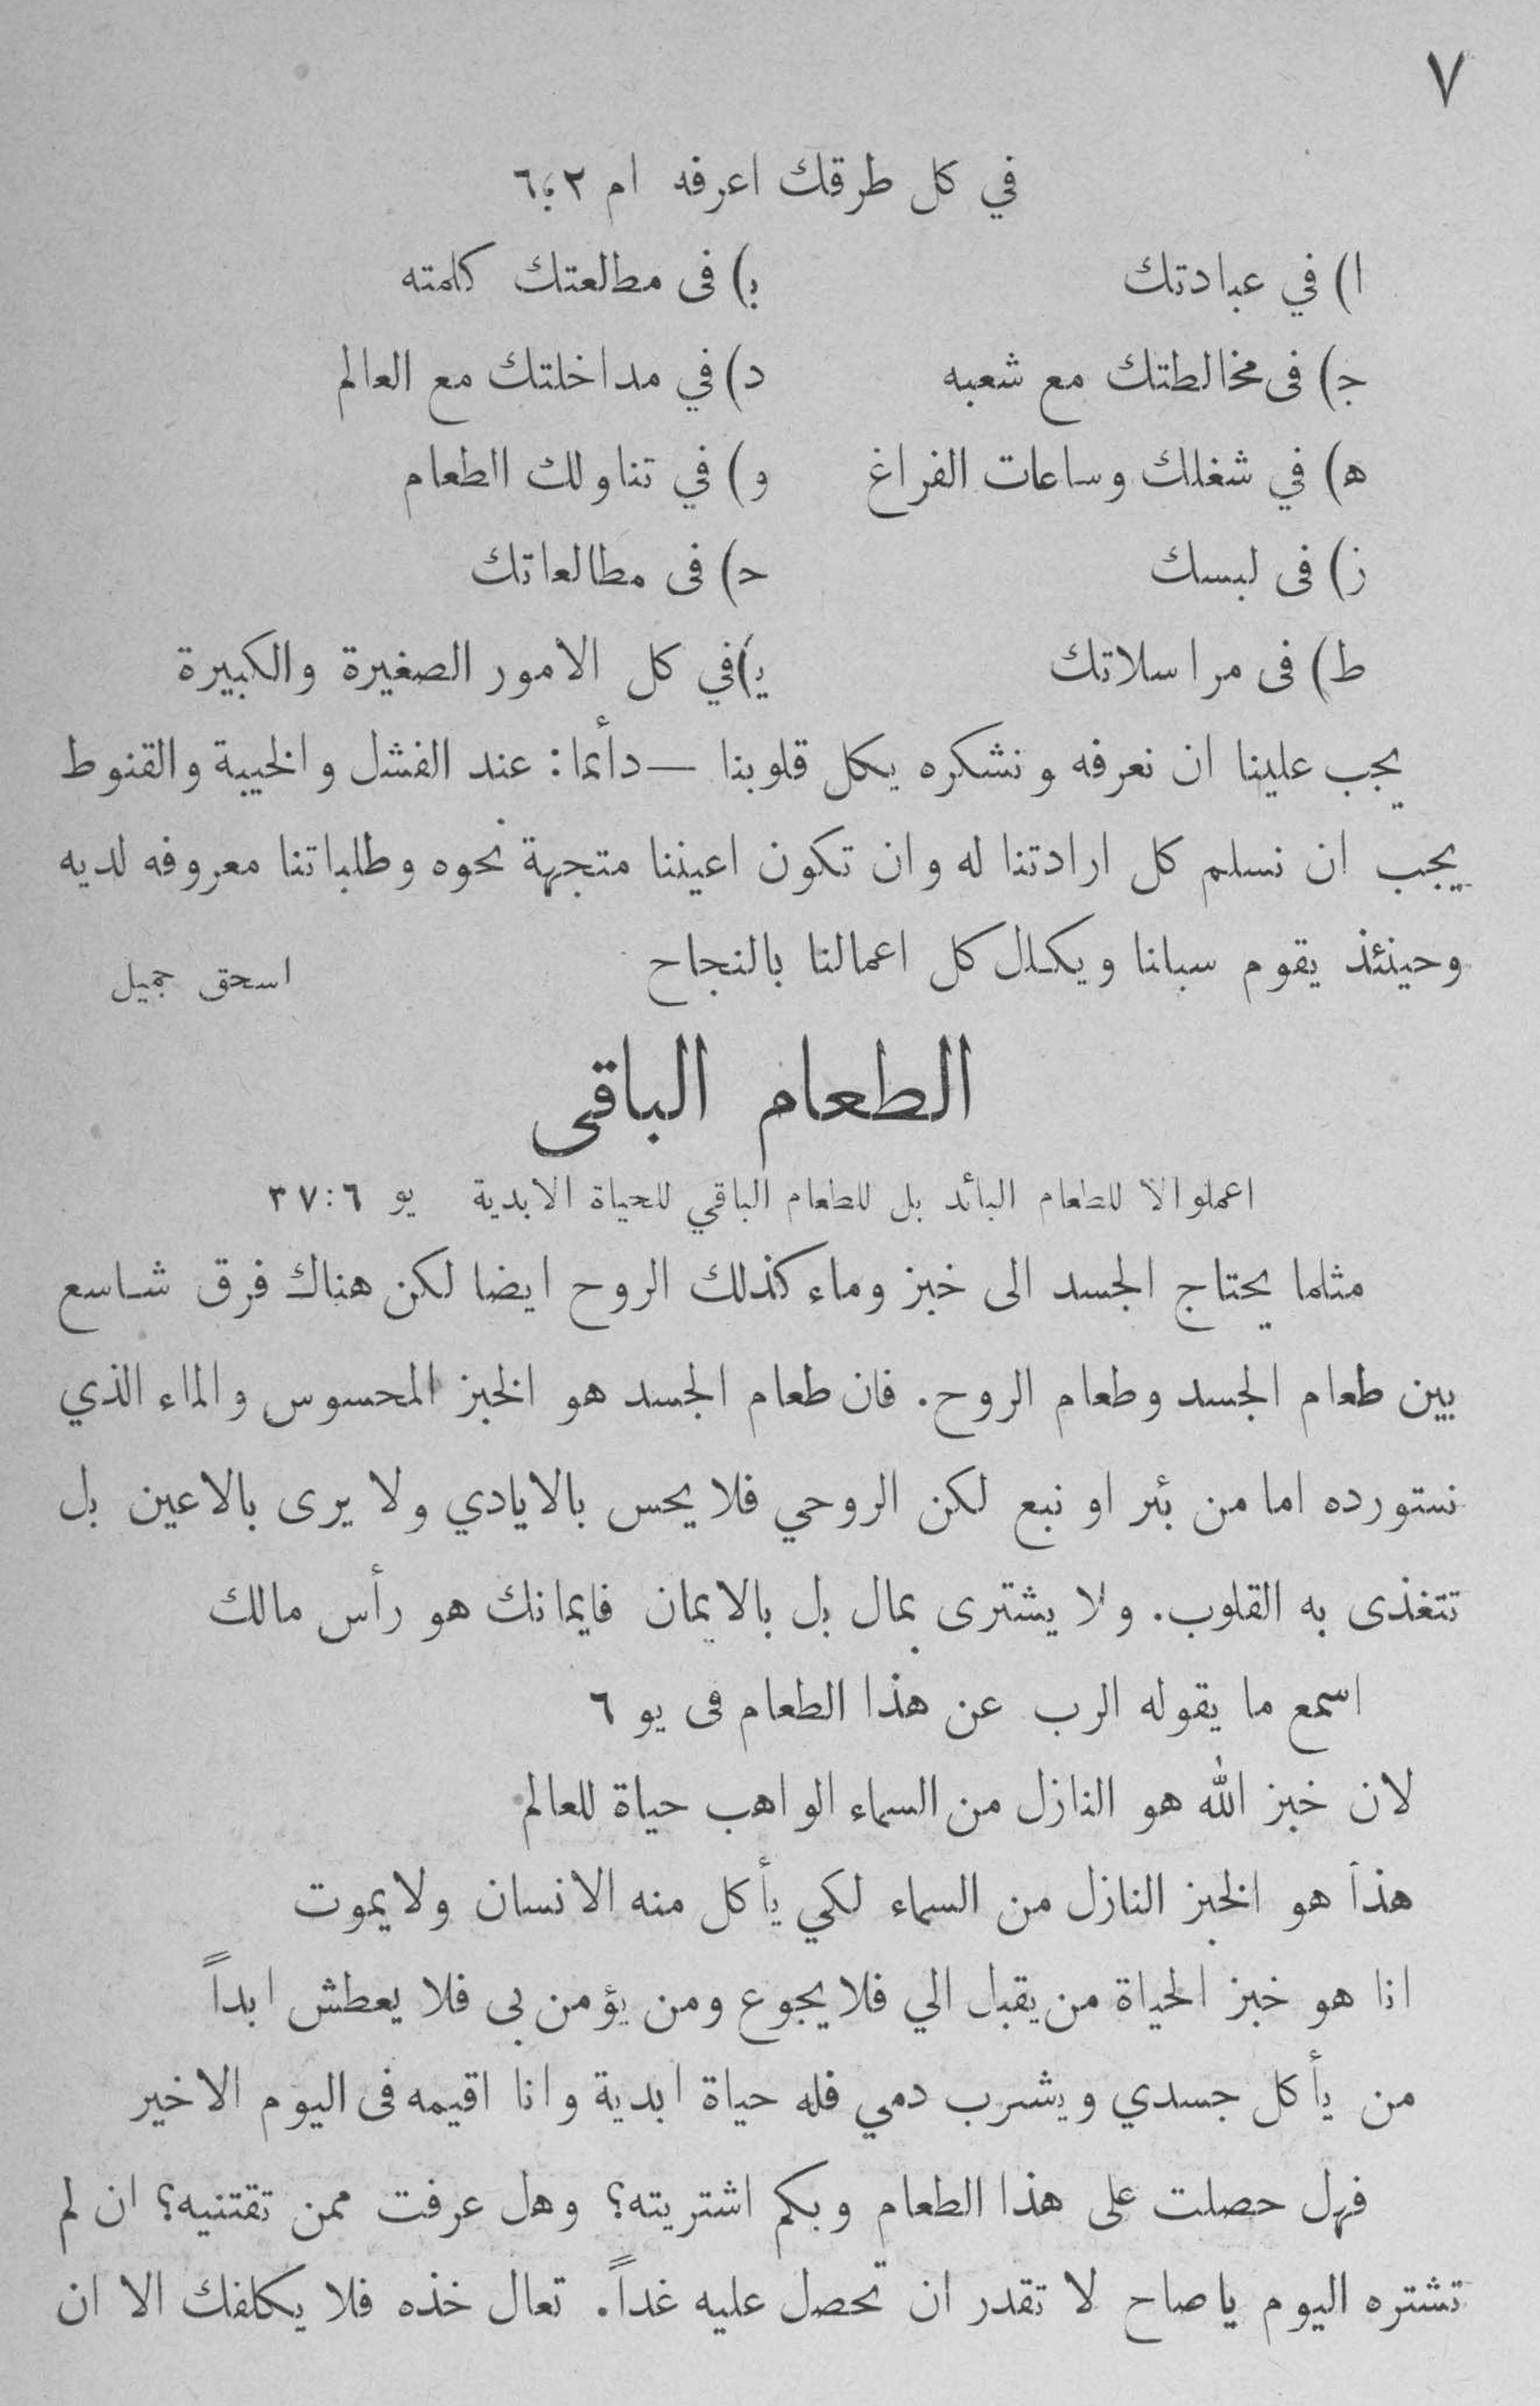 ٧
في كل طرقك اعرفه ام ٢؛٦
ا) في عبادتك ب) فى مطالعتك كلمته
ج) فى مخالطتك مع شعبه د) في مداخلتك مع العالم
ه) في شغلك وساعات الفراغ و) في تناولك الطعام
ز) فى لبسك ح) فى مطالعاتك
ط) فى مراسلاتك ي) في كل الامور الصغيرة والكبيرة
يجب علينا ان نعرفه ونشكره بكل قلوبنا — دأئما: عند الفشل والخيبة والقنوط
يجب ان نسلم كل ارادتنا له وان تكون اعيننا متجهة نحوه وطلباتنا معروفه لديه
وحينئذ يقوم سبلنا ويكلل كل اعمالنا بالنجاح اسحق جميل
الطعام الباقى
اعملوا لا للطعام البائد بل للطعام الباقي للحياة الابدية يو ٦:٣٧
مثلما يحتاج الجسد الى خبز وماء كذلك الروح ايضا لكن هناك فرق شاسع
بين طعام الجسد وطعام الروح. فان طعام الجسد هو الخبز المحسوس والماء الذي
نستورده اما من بئر او نبع لكن الروحي فلا يحس بالايادي ولا يرى بالاعين بل
تتغذى به القلوب. ولا يشترى بمال بل بالايمان فايمانك هو رأس مالك
اسمع ما يقوله الرب عن هذا الطعام فى يو ٦
لان خبز الله هو النازل من السماء الواهب حياة للعالم
هذا هو الخبز النازل من السماء لكي يأكل منه الانسان ولا يموت
انا هو خبز الحياة من يقبل الي فلا يجوع ومن يؤمن بى فلا يعطش ابداً
من يأكل جسدي ويشرب دمي فله حياة ابدية وانا اقيمه فى اليوم الاخير
فهل حصلت على هذا الطعام وبكم اشتريته؟ وهل عرفت ممن تقتنيه؟ ان لم
تشتره اليوم ياصاح لا تقدر ان تحصل عليه غداً. تعال خذه فلا يكلفك الا ان